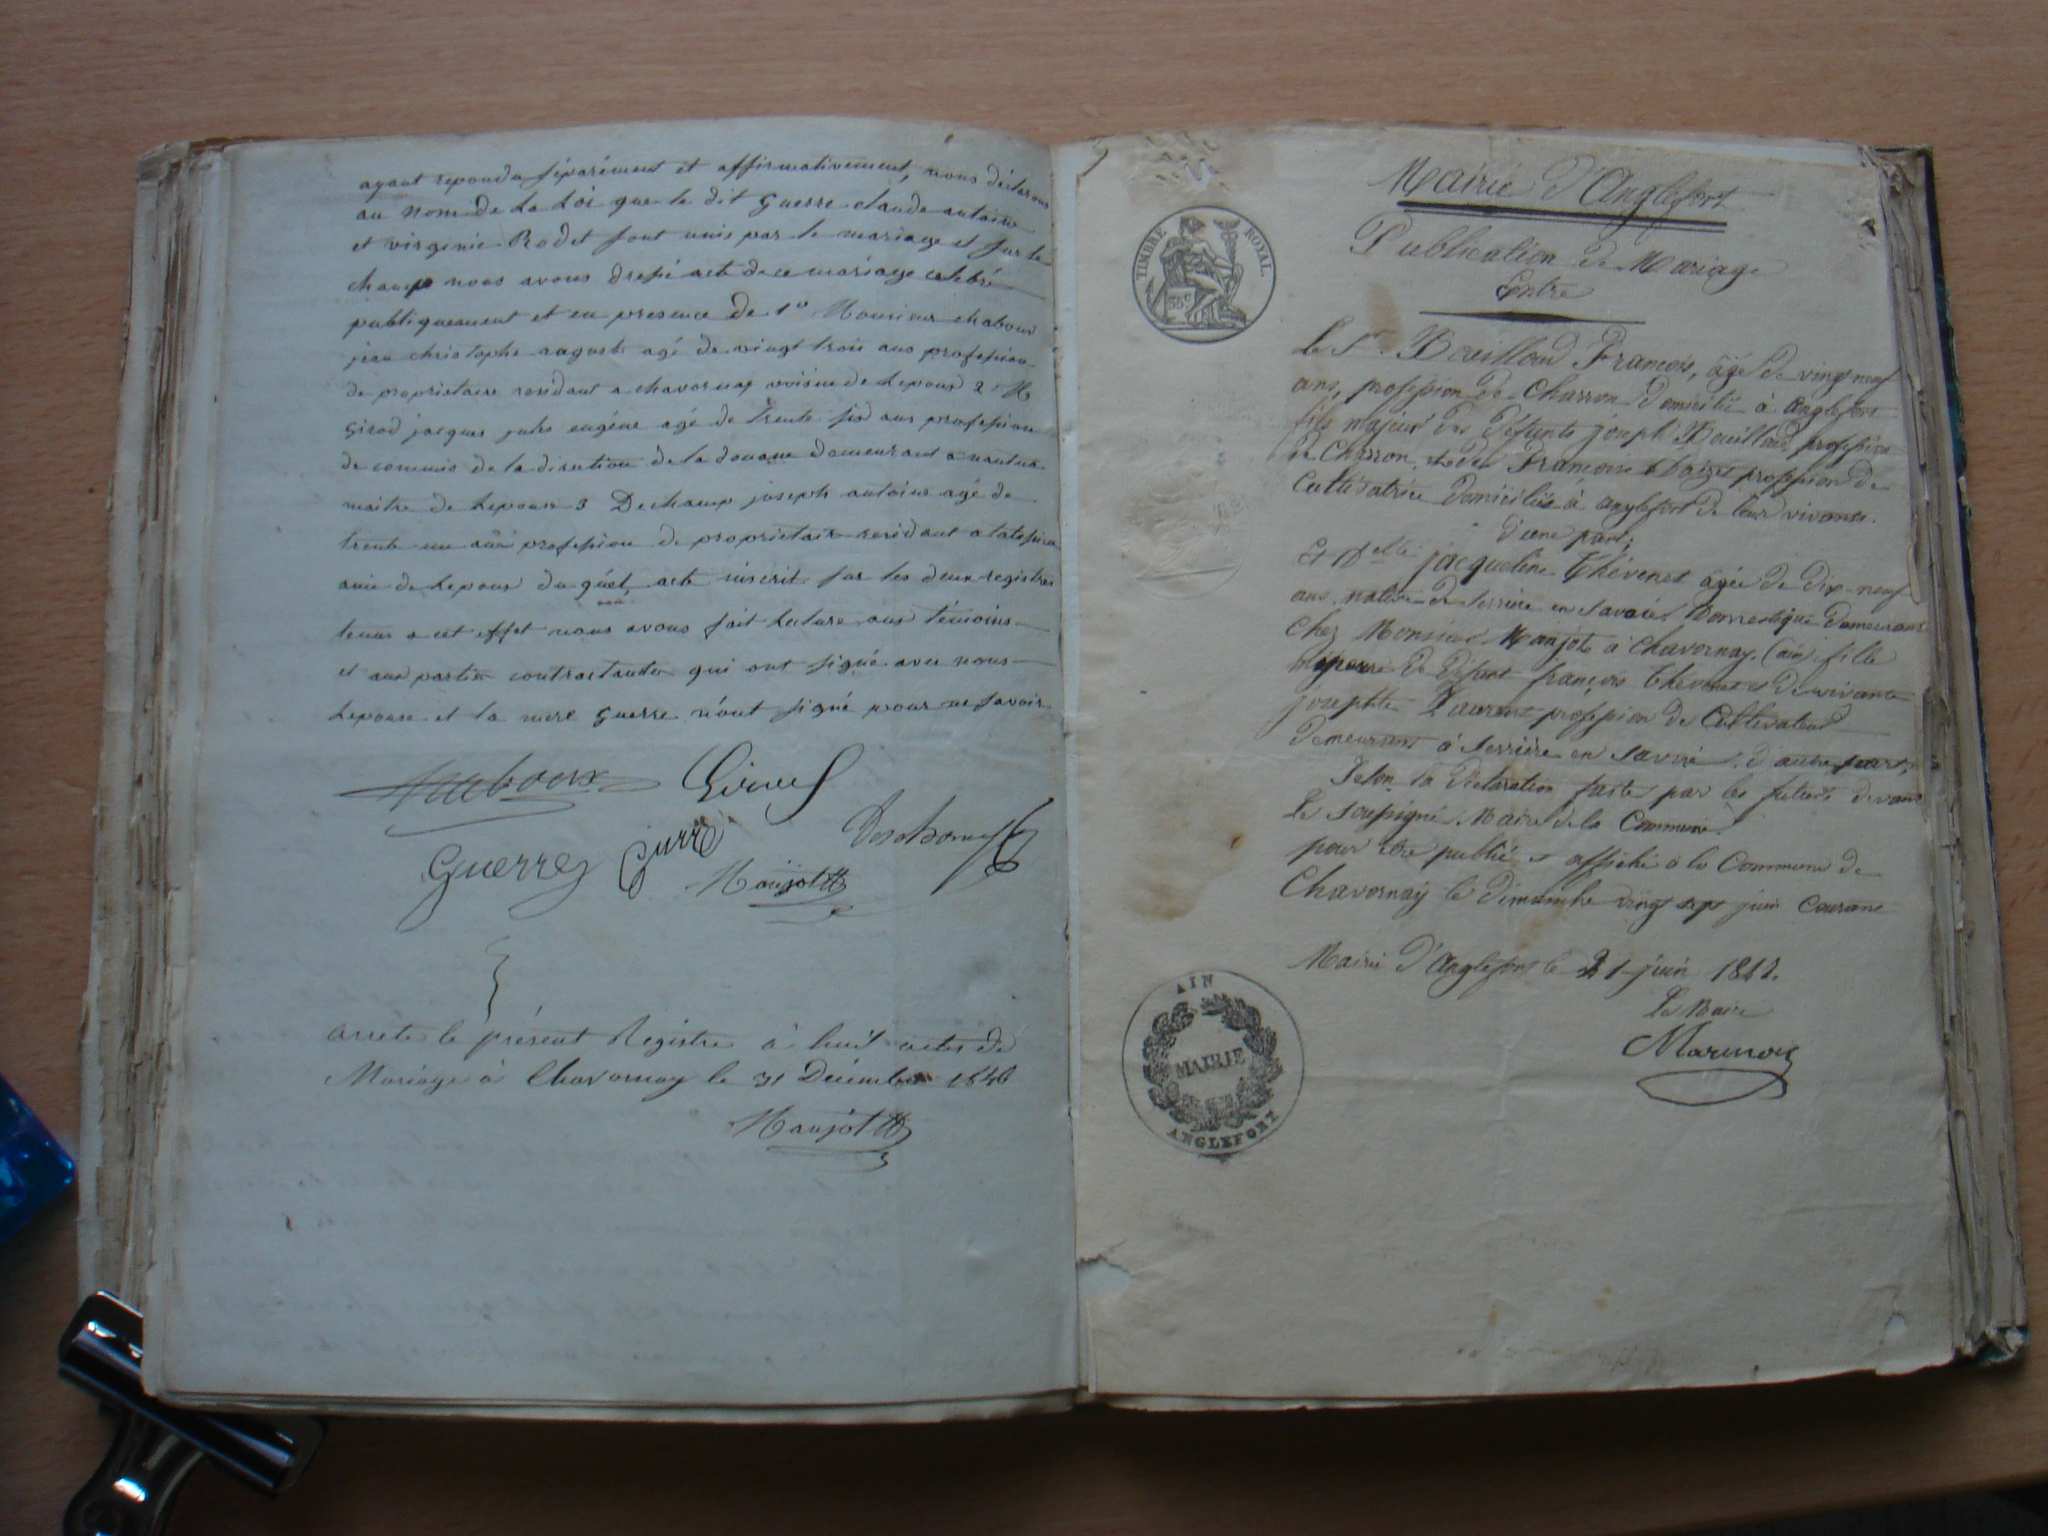 ayant repondu séparément et affirmativement, nous déclarons
au nom de la Loi que le dit Guerre claude antoine
et virginie Rodet sont unis par le mariage et sur le
champ nous avons dressé acte de ce mariage célébré
publiquement et en presence de 1° Monsieur chaboux
jean christophe auguste agé de vingt trois ans profession
de propriétaire residant a chavornay voisin de Lepoux 2 M
Girod jacques jules eugène agé de trente six ans profession
de commis de la direction de la douane demeurant a nantua
de Lepouse 3 Dechamp joseph antoine agé de
trente un ans profession de propriétaire residant a
amie de Lepoux du guel, acte inscrit sur les deux registres
tenus a cet effet nous avons fait Lecture aux témoins
et aux parties contractantes qui ont signé avec nous
Lepouse et la mere Guerre n'ont signé pour ne savoir
Chaboux Girod
Guerre Guerre Deschamp
Manjott
arrete le présent Registre à huit actes de
Mariage à Chavornay le 31 Décembre 1846
Manjott
Mairie d'Anglefort
Publication de Mariage
Entre
TIMBRE ROYAL.
35c
Le Sr. Bouilloud François, âgé de vingt neuf
ans, profession de Charron domicilié à Anglefort
fils majeur des défunts joseph Bouilloud, profession
de Charron, et de Françoise profession de
Cultivatrice domiciliés à anglefort de leur vivants.
d'une part;
Et Delle jacqueline Thévenet âgée de dix-neuf
ans, native de Serrière en Savoie, Domestique demeurant
chez Monsieur Manjot à Chavornay (ain) fille
mineure de défunt françois Thévenet et de vivante
josephte Laurent profession de Cultivateurs
demeurant à Serrière en Savoie, d'autre part,
Selon la déclaration faite par les futurs devant
le soussigné Maire de la Commune.
pour être publié et affiché à la Commune de
Chavornay le dimanche vingt sept juin Courant
Mairie d'Anglefort le 21 juin 1842.
Le Maire
AIN
MAIRIE
ANGLEFORT